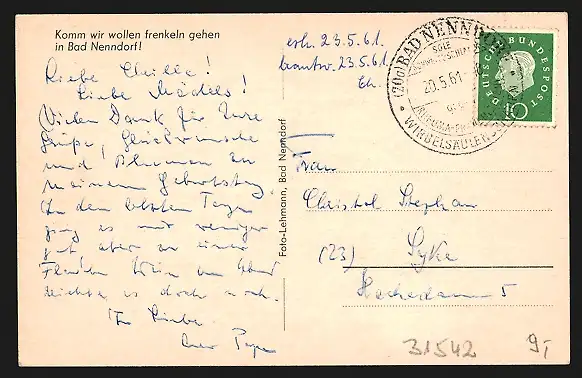 Komm wir wollen frenkeln gehen
in Bad Nenndorf!
erh. 23.5.61.
beantw. 23.5.61.
Liebe
Liebe Mädels!
Vielen Dank für Eure
Grüße, Glückwünsche
und Blumen zu
meinem Geburtstag.
In den letzten Tagen
ging es mir weniger
gut aber zu einer
Flasche Wein am Abend
reichte es doch noch.
In Liebe
Euer Papa
Foto-Lehmann, Bad Nenndorf
(20a) BAD NENNDORF
SOLE
20.5.61
WIRBELSÄULEN
DEUTSCHE BUNDESPOST
10
Frau
Christel Stephan
(23) Syke
5
31542
9,-